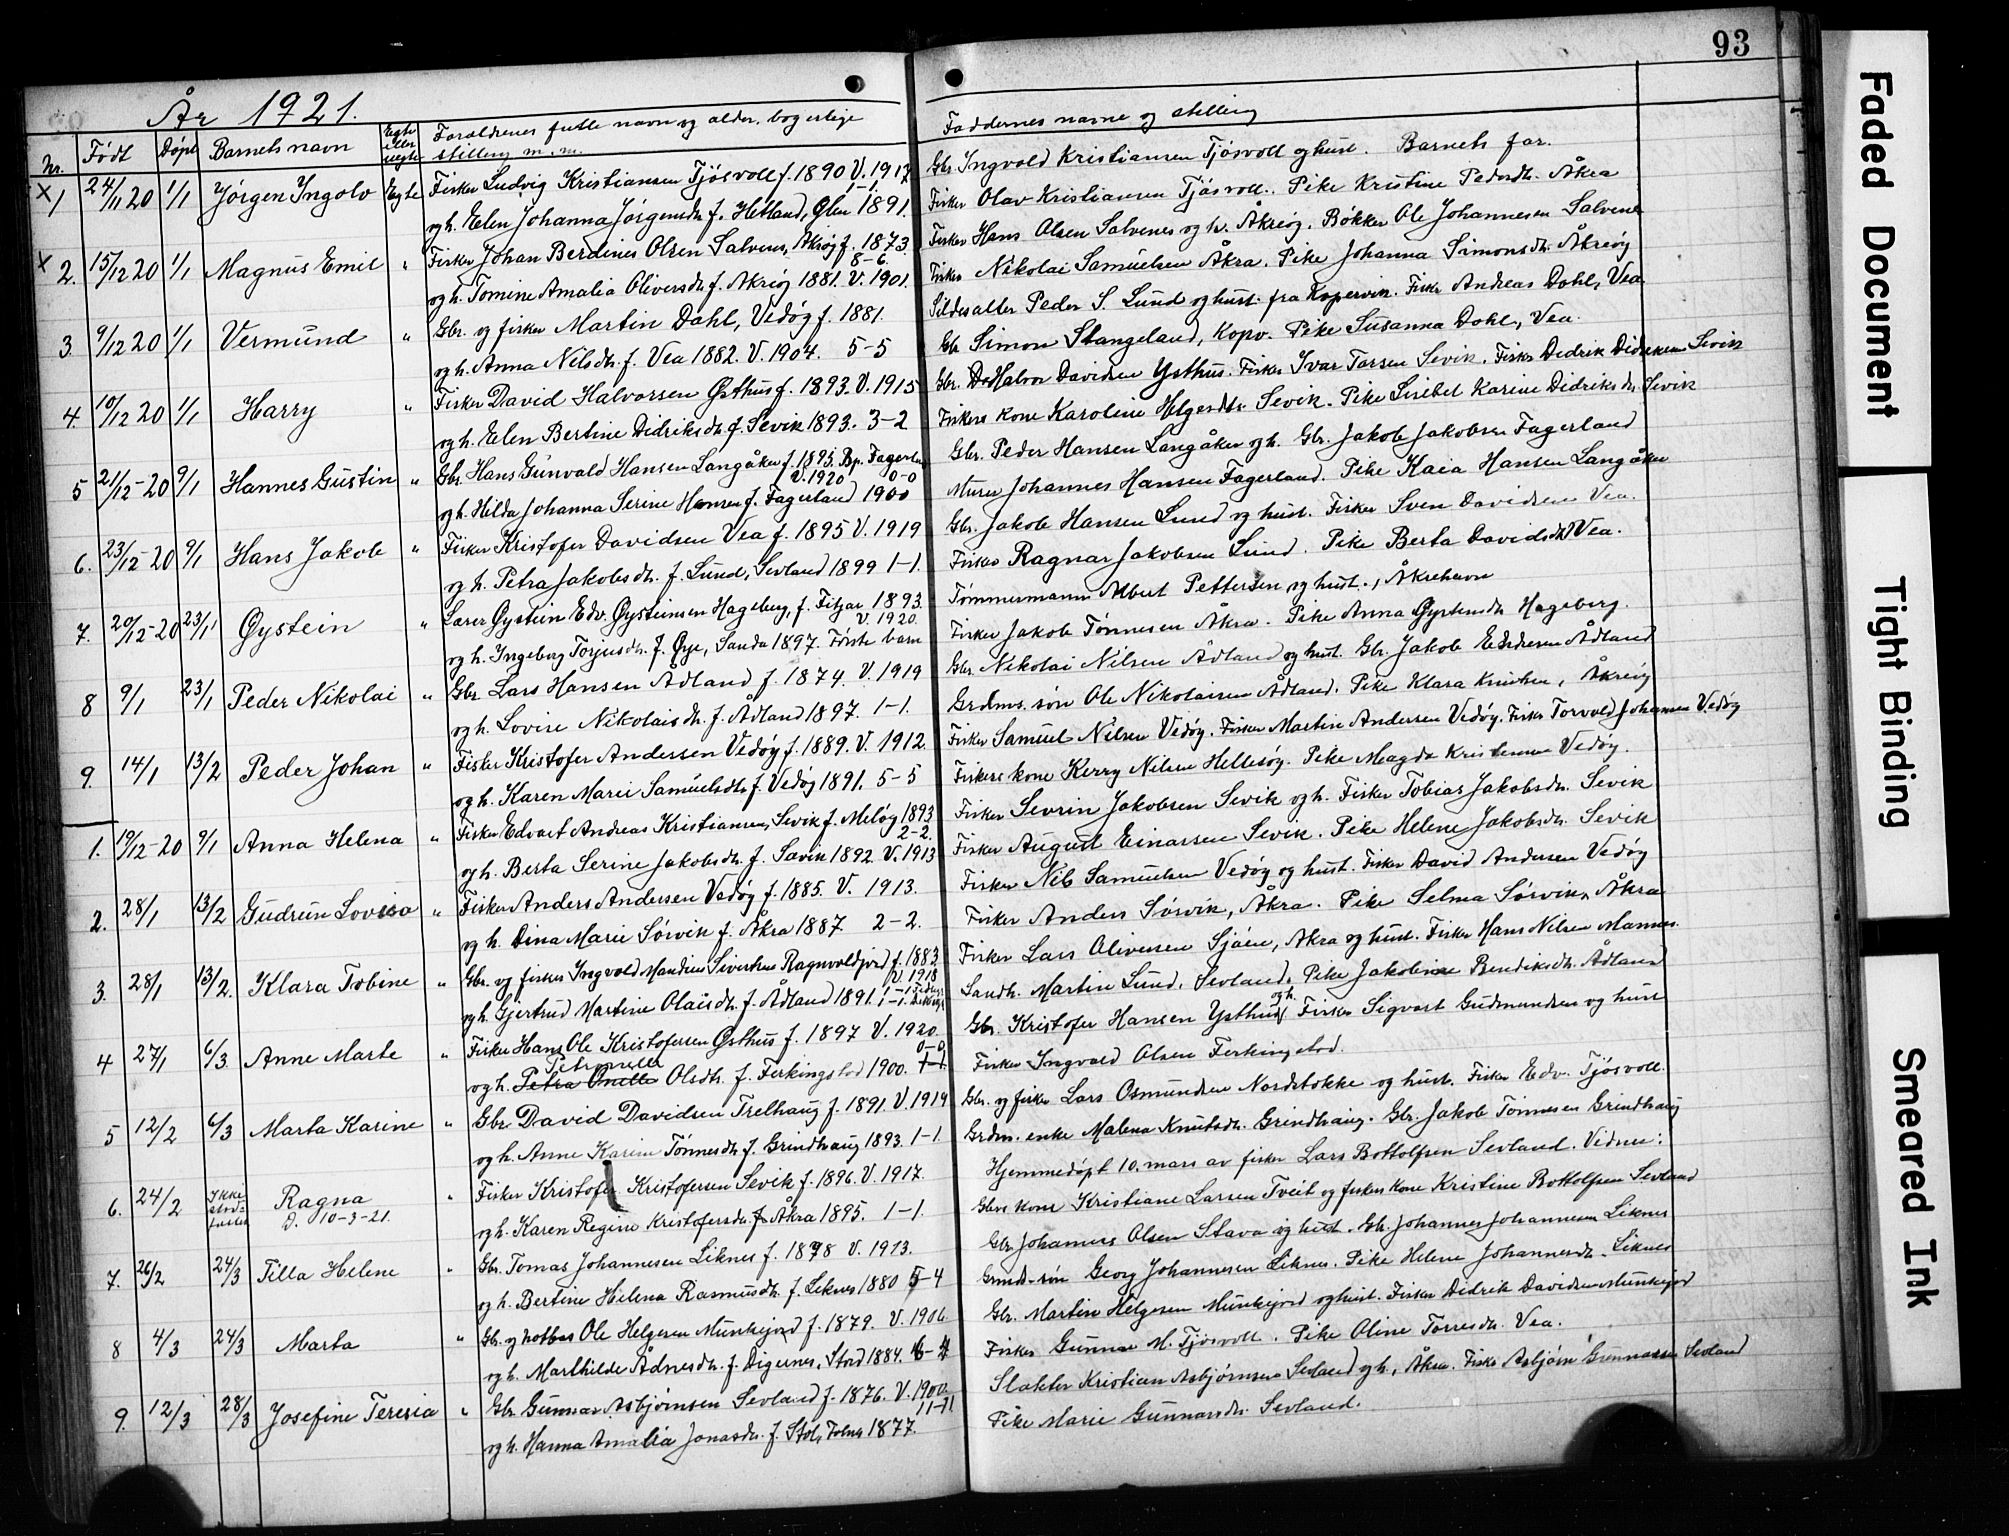 93
År 1921.
Nr. Født Døpt Barnets navn Egte eller uegte Forældrenes fulle navn og alder, borgerlige stilling m.m.
Faddernes navne og stilling
1 24/11 20 1/1 Jörgen Ingolv Egte Fisker Ludvig Kristiansen Tjösvoll f. 1890 V. 1917 1-1.
og h. Elen Johanna Jörgensdtr. f. Hetland, Ølen 1891.
Gbr. Ingvald Kristiansen Tjösvoll og hust. Barnets far.
Fisker Olav Kristiansen Tjösvoll. Pike Kristine Pedersdtr. Åkra
2. 15/12 20 1/1 Magnus Emil " Fisker Johan Berdines Olsen Salvenes, Åkröy f. 1873. 8-6.
og h. Tomine Amalia Oliversdtr. f. Åkröy 1881. V. 1901.
Fisker Hans Olsen Salvenes og h. Åkröy. Bökker Ole Johannesen Salvenes
Fisker Nikolai Samuelsen Åkra. Pike Johanna Simonsdtr. Åkröy
3. 9/12 20 1/1 Vermund " Gbr. og fisker Martin Dahl, Vedöy f. 1881.
og h. Anna Nilsdtr. f. Vea 1882. V. 1904. 5-5
Sildesalter Peder S. Lund og hust. fra Kopervik. Fisker Andreas Dahl, Vea
Gbr. Simon Stangeland, Kopv. Pike Susanna Dahl, Vea.
4. 10/12 20 1/1 Harry " Fisker David Halvorsen Østhus f. 1893. V. 1915
og h. Elen Bertine Didriksdtr. f. Sevik 1893. 3-2
Gbr. Halvor Davidsen Ysthus. Fisker Ivar Tarsen Sevik. Fisker Dedrik Didriksen Sevik
Fiskers kone Karoline Helgesdtr. Sevik. Pike Lisebet Karine Didriksdtr. Sevik
5 21/12-20 9/1 Hannes Gustin " Gbr. Hans Gunvald Hansen Langåker f. 1895. Bp. Fagerland V. 1920 0-0
og h. Hilda Johanna Serine Hansen f. Fagerland 1900
Gbr. Peder Hansen Langåker og h. Gbr. Jakob Jakobsen Fagerland
Murer Johannes Hansen Fagerland. Pike Kaia Hansen Langåker
6. 23/12-20 9/1 Hans Jakob " Fisker Kristofer Davidsen Vea f. 1895 V. 1919
og h. Petra Jakobsdtr. f. Lund, Sevland 1899 1-1.
Gbr. Jakob Hansen Lund og hust. Fisker Sven Davidsen Vea.
Fisker Ragnar Jakobsen Lund. Pike Berta Davidsdtr Vea.
7. 20/12-20 23/1 Øystein " Lærer Øystein Edv. Øysteinsen Hageberg, f. Fitjar 1893. V. 1920.
og h. Ingeborg Torjusdtr. f. Øye, Sauda 1897. Förste barn
Tömmermann Albert Pettersen og hust., Åkrehavn
Fisker Jakob Tönnesen Åkra. Pike Anna Øysteinsdtr. Hageberg.
8 9/1 23/1 Peder Nikolai " Gbr Lars Hansen Ådland f. 1874. V. 1919
og h. Lovise Nikolaisdtr. f. Ådland 1897. 1-1.
Gbr. Nikolai Nilsen Ådland og hust. Gbr. Jakob Endresen Ådland
Grdms. sön Ole Nikolaisen Ådland. Pike Klara Knutsen, Åkröy
9. 14/1 13/2 Peder Johan " Fisker Kristofer Andersen Vedöy f. 1889. V. 1912.
og h. Karen Marie Samuelsdtr. f. Vedöy 1891. 5-5
Fisker Samuel Nilsen Vedöy. Fisker Martin Andersen Vedöy. Fisker Torvald Johansen Vedöy
Fiskers kone Kerry Nilsen Hellesöy. Pike Magda Kristensen Vedöy.
1. 19/12-20 9/1 Anna Helena " Fisker Edvart Andreas Kristiansen, Sevik f. Melöy 1893 2-2.
og h. Berta Serine Jakobsdtr. f. Sævik 1892. V. 1913
Fisker Sevrin Jakobsen Sevik og h. Fisker Tobias Jakobsdtr. Sevik
Fisker August Einarsen Sevik. Pike Helene Jakobsdtr. Sevik
2. 28/1 13/2 Gudrun Lovisa " Fisker Anders Andersen Vedöy f. 1885. V. 1913.
og h. Dina Marie Sörvik f. Åkra 1887 2-2.
Fisker Nils Samuelsen Vedöy og hust. Fisker David Andersen Vedöy
Fisker Anders Sörvik, Åkra. Pike Selma Sörvik, Åkra
3. 28/1 13/2. Klara Tobine " Gbr. og fisker Ingvald Mandius Sivertsen Ragnvaldjord f. 1883. V. 1918
og h. Gjertrud Martine Olaisdtr. f. Ådland 1891. 1-1.
Fisker Lars Oliversen Sjöen, Åkra og hust. Fisker Hans Nilsen Mannes.
Landh. Martin Lund, Sevland. Pike Jakobine Bendiksdtr. Ådland
4 27/1 6/3 Anne Marte " Fisker Hans Ole Kristofersen Østhus f. 1897 V. 1920. 0-0
Petronella
og h. Petra Onella Olsdtr. f. Ferkingstad 1900. 1-1.
Gbr. Kristofer Hansen Ysthus og h. Fisker Sigvart Gudmundsen og hust
Fisker Ingvald Olsen Ferkingstad.
5 12/2 6/3 Marta Karine " Gbr David Davidsen Trelhaug f. 1891. V. 1914
og h. Anne Karine Tönnesdtr. f. Grindhaug 1893. 1-1.
Gbr. og fisker Lars Osmundsen Nordstokke og hust. Fisker Edv. Tjösvoll.
Grdm. enke Malena Knutsdtr. Grindhaug. Gbr. Jakob Tönnesen Grindhaug
6. 24/2 Ikke stadfæstet Ragna D. 10-3-21. " Fisker Kristofer Kristofersen Sevik f. 1896. V. 1917.
og h. Karen Regine Kristofersdtr f. Åkra 1895. 1-1.
Hjemmedöpt 10. mars av fisker Lars Bottolfsen Sevland. Vidner:
Gbrs kone Kristiane Larsen Tveit og fiskers kone Kristine Bottolfsen Sevland
7. 26/2 24/3 Tilla Helene " Gbr. Tomas Johannesen Liknes f. 1878 V. 1913.
og h. Bertine Helena Rasmusdtr. f. Liknes 1880 5-4
Gbr Johannes Olsen Stava og hust. Gbr. Johannes Johannesen Liknes
Grmds-sön Georg Johannesen Liknes. Pike Helene Johannesdtr. Liknes
8 4/3 24/3 Marta " Gbr. og notbas Ole Helgesen Munkejord f. 1879. V. 1906
og h. Marthilde Ådnesdtr. f. Digernes, Stord 1884. 6-4
Gbr. Martin Helgesen Munkejord og hust. Fisker Didrik Davidsen Munkejord
Fisker Gunnar M. Tjösvoll. Pike Oline Torresdtr. Vea.
9. 12/3 28/3 Josefine Teresia " Gbr Gunnar Asbjörnsen Sevland f. 1876. V. 1900. 11-11
og h. Hanna Amalia Jonasdtr. f. Stol, Tolnes 1877.
Slakter Kristian Asbjörnsen Sevland og h., Åkra. Fisker Asbjörn Gunnarsen Sevland
Pike Marie Gunnarsdtr. Sevland.
Faded Document
Tight Binding
Smeared Ink